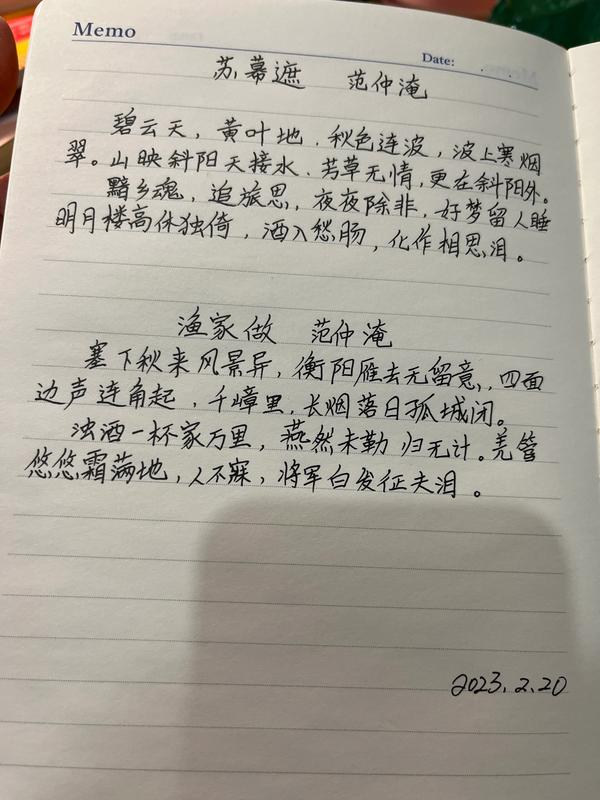 Memo
Date:
苏幕遮 范仲淹
碧云天，黄叶地，秋色连波，波上寒烟
翠。山映斜阳天接水，芳草无情，更在斜阳外。
黯乡魂，追旅思，夜夜除非，好梦留人睡
明月楼高休独倚，酒入愁肠，化作相思泪。
渔家做 范仲淹
塞下秋来风景异，衡阳雁去无留意，四面
边声连角起，千嶂里，长烟落日孤城闭。
浊酒一杯家万里，燕然未勒归无计。羌管
悠悠霜满地，人不寐，将军白发征夫泪。
2023.2.20